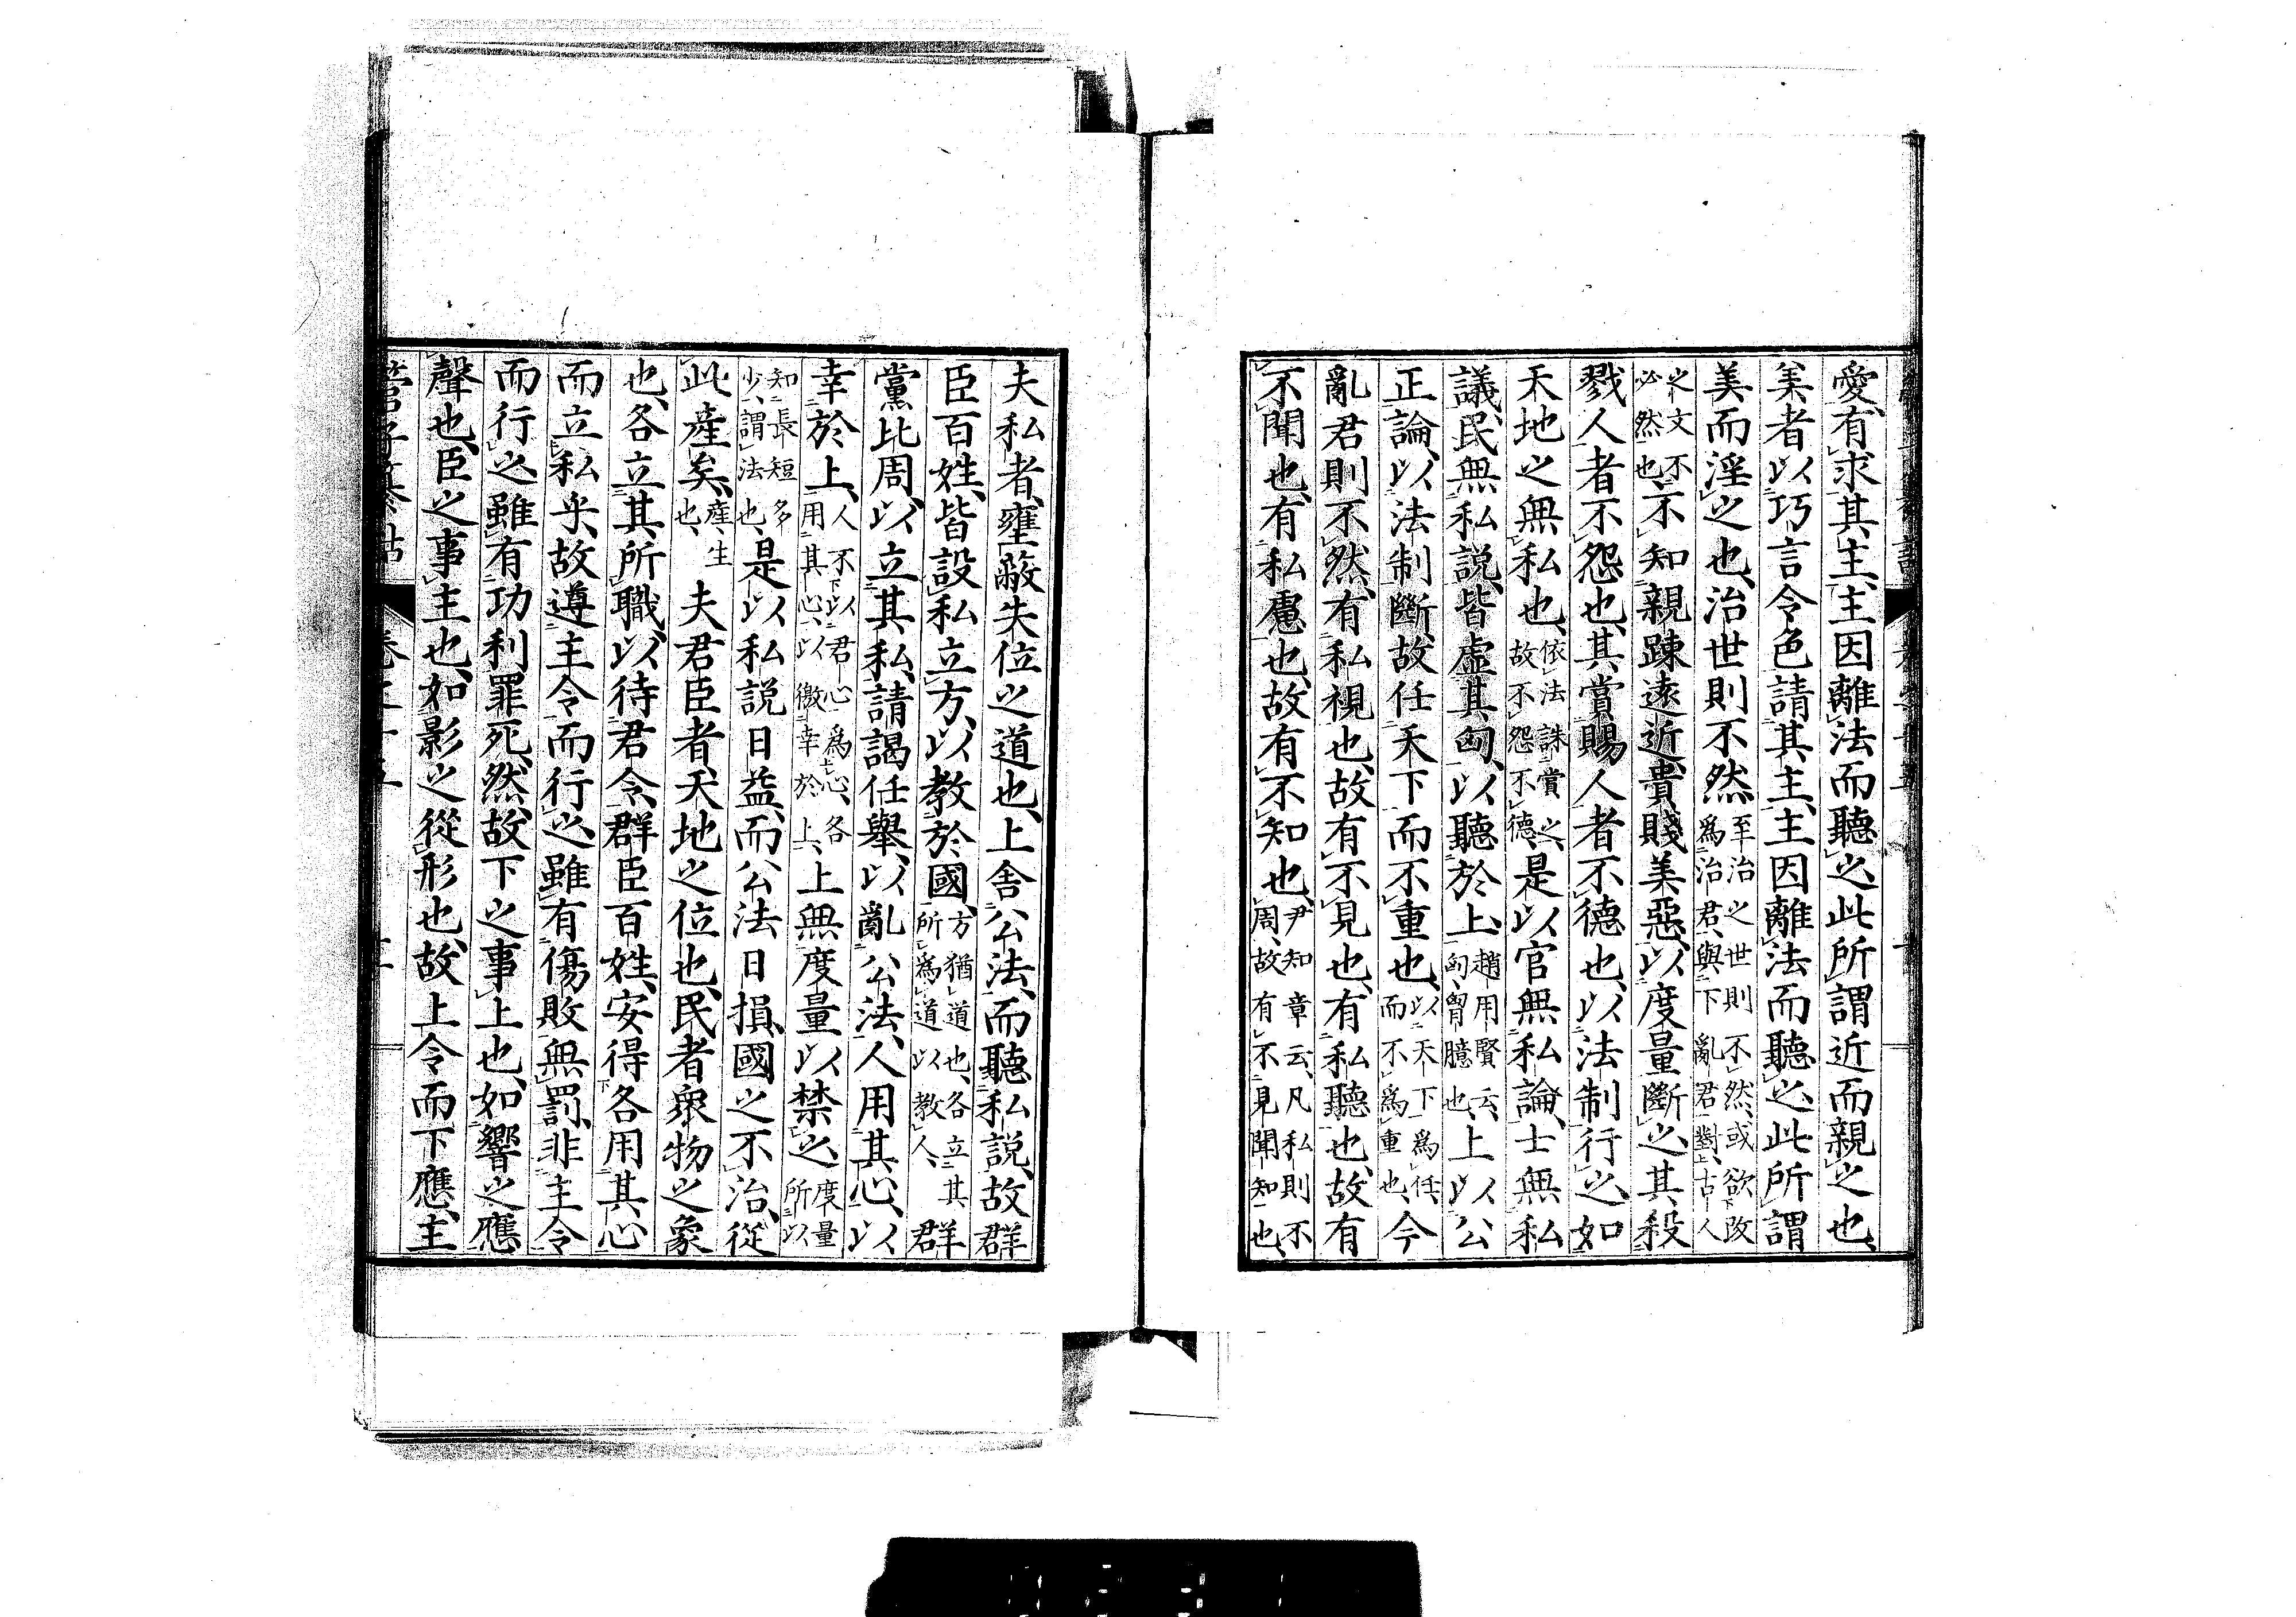 愛、有求其主、主因離法而聽之、此所謂近而親之也、
美者以巧言令色請其主、主因離法而聽之、此所謂
美而淫之也、治世則不然、至治之世則不然、或欲改爲治君、與下亂君對上、古人
之文不必然也、不知親踈遠近貴賤美惡、以度量斷之、其殺
戮人者不怨也、其賞賜人者不德也、以法制行之、如
天地之無私也、依法誅賞之、故不怨不德、是以官無私論、士無私
議、民無私說、皆虛其匈、以聽於上、趙用賢云、匈、胷臆也、上以公
正論、以法制斷、故任天下而不重也、以天下爲任、而不爲重也、今
亂君則不然、有私視也、故有不見也、有私聽也、故有
不聞也、有私慮也、故有不知也、尹知章云、凡私則不周、故有不見聞知也、
夫私者、壅蔽失位之道也、上舍公法、而聽私說、故群
臣百姓、皆設私立方、以教於國、方猶道也、各立其所爲道以教人、群
黨比周、以立其私、請謁任舉、以亂公法、人用其心、以
幸於上、人不以君心爲心、各用其心、以徼幸於上、上無度量以禁之、度量所以
知長短多少、謂法也、是以私說日益、而公法日損、國之不治、從
此產矣、產、生也、夫君臣者、天地之位也、民者、衆物之象
也、各立其所職、以待君令、群臣百姓、安得各用其心
而立私乎、故遵主令而行之、雖有傷敗、無罰、非主令
而行之、雖有功利、罪死、然故下之事上也、如響之應
聲也、臣之事主也、如影之從形也、故上令而下應、主
管子纂詁 卷十五